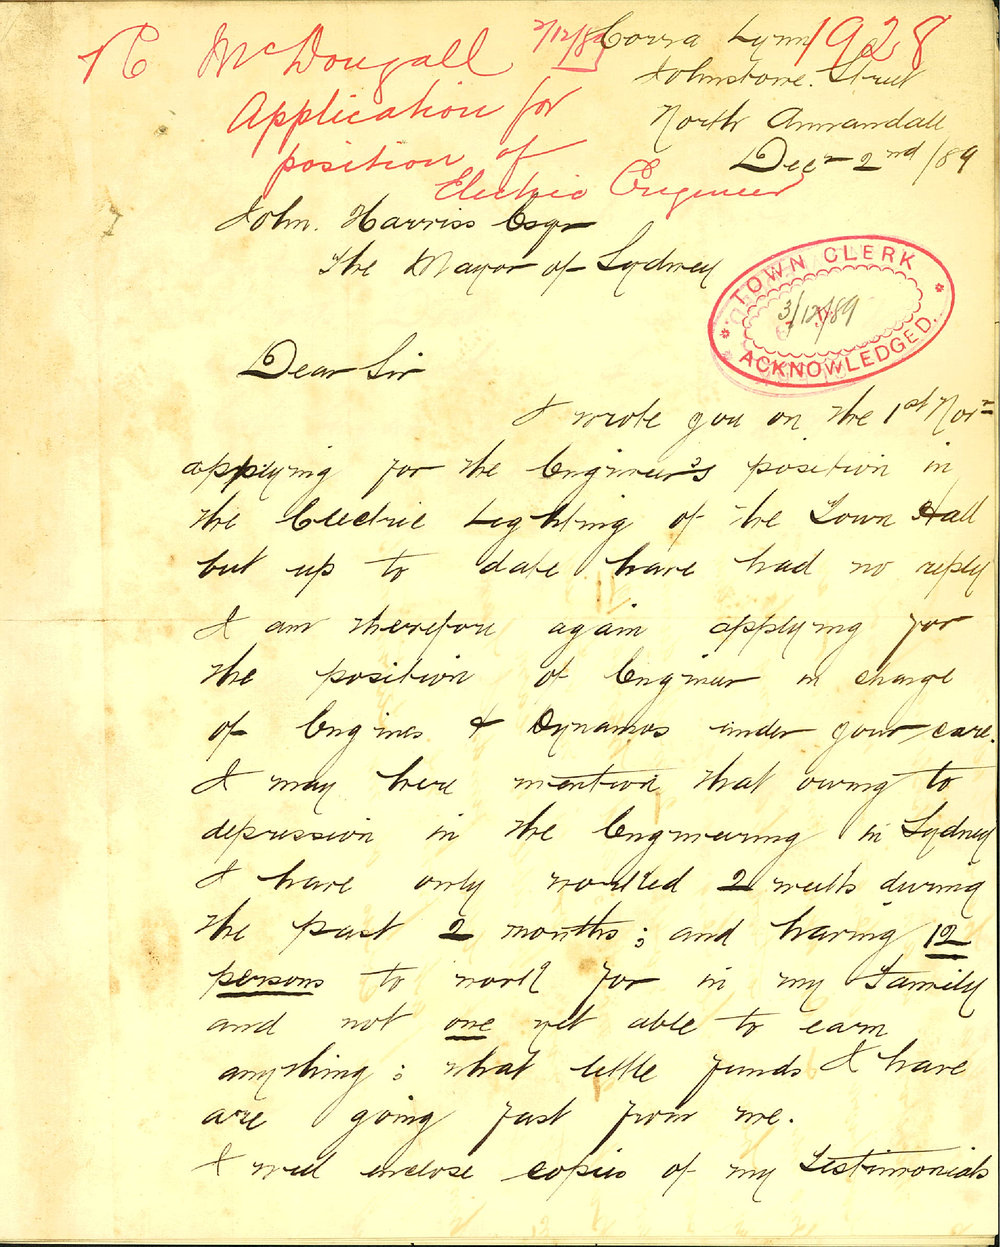 McDougall
2/12/89
1928
Application for
position of
Electric Engineer
Corra Lynn
Johnstone. Street
North Annandall
Decr 2nd/89
John. Harriss Esqr
The Mayor of Sydney
TOWN CLERK
3/12/89
ACKNOWLEDGED.
Dear Sir
I wrote you on the 1st Novr
applying for the Engineer's position in
the Electric Lighting of the Town Hall
but up to date have had no reply
I am therefore again applying for
the position of Engineer in charge
of Engines & Dynamos under your care.
I may here mention that owing to
depression in the Engineering in Sydney
I have only worked 2 weeks during
the past 2 months; and having 12
persons to work for in my Family
and not one yet able to earn
anything; what little funds I have
are going fast from me.
I will enclose copies of my Testimonials